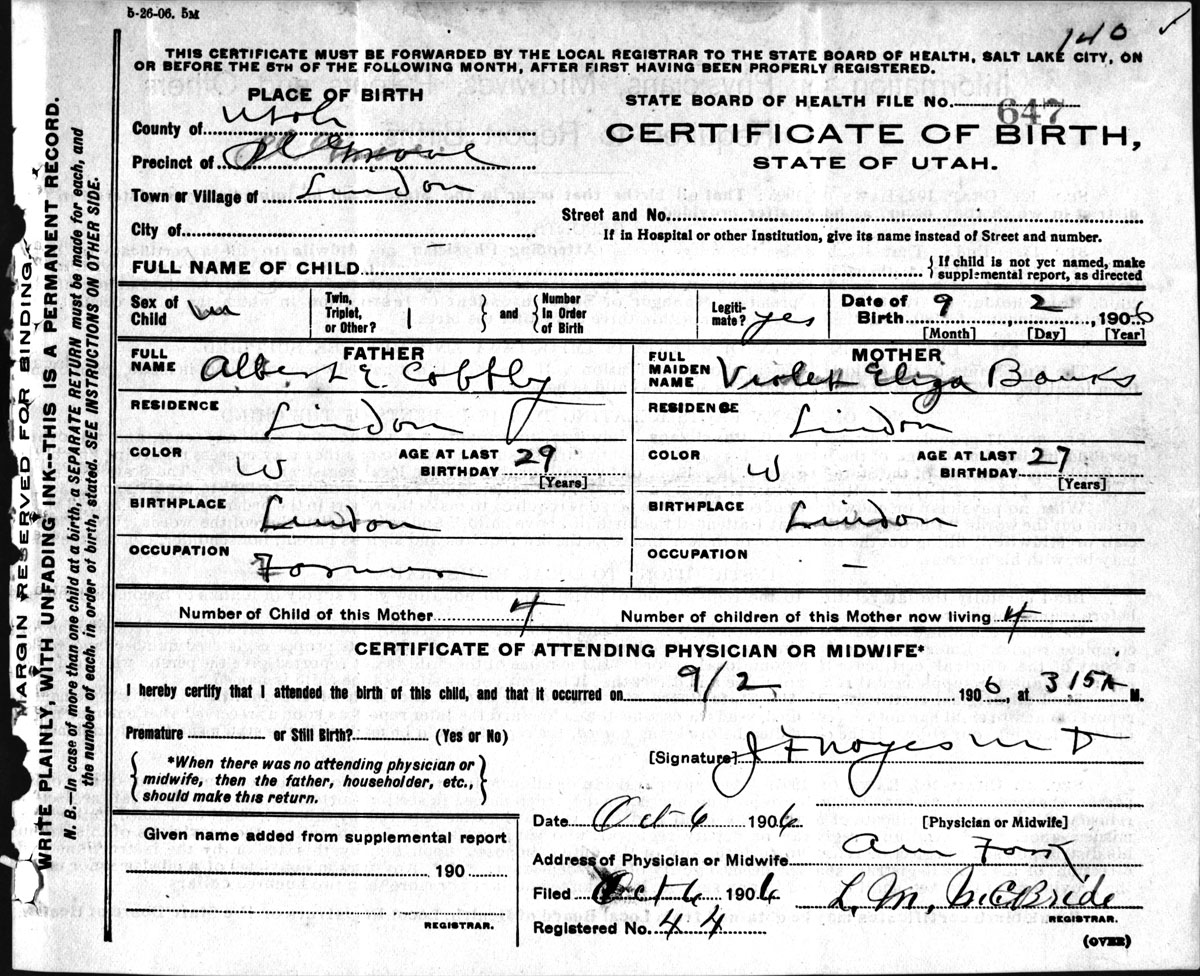 5-26-06. 5M
140
THIS CERTIFICATE MUST BE FORWARDED BY THE LOCAL REGISTRAR TO THE STATE BOARD OF HEALTH, SALT LAKE CITY, ON
OR BEFORE THE 5TH OF THE FOLLOWING MONTH, AFTER FIRST HAVING BEEN PROPERLY REGISTERED.
PLACE OF BIRTH
County of Utah
Precinct of Pl Grove
Town or Village of Lindon
City of
STATE BOARD OF HEALTH FILE NO. 647
CERTIFICATE OF BIRTH,
STATE OF UTAH.
Street and No.
If in Hospital or other Institution, give its name instead of Street and number.
FULL NAME OF CHILD
If child is not yet named, make
supplemental report, as directed
Sex of Child M
Twin, Triplet, or Other? 1 and Number In Order of Birth
Legiti-mate? yes
Date of Birth 9 2, 1906
[Month] [Day] [Year]
FATHER
FULL NAME Albert E
RESIDENCE Lindon
COLOR W AGE AT LAST BIRTHDAY 29
[Years]
BIRTHPLACE Lindon
OCCUPATION Farmer
MOTHER
FULL MAIDEN NAME Violet Eliza Banks
RESIDENCE Lindon
COLOR W AGE AT LAST BIRTHDAY 27
[Years]
BIRTHPLACE Lindon
OCCUPATION —
Number of Child of this Mother 4 Number of children of this Mother now living 4
CERTIFICATE OF ATTENDING PHYSICIAN OR MIDWIFE*
I hereby certify that I attended the birth of this child, and that it occurred on 9/2 1906, at 315A M.
Premature or Still Birth? (Yes or No)
*When there was no attending physician or
midwife, then the father, householder, etc.,
should make this return.
[Signature] J F Noyes M D
[Physician or Midwife]
Date Oct 6 1906
Address of Physician or Midwife Am Fork
Filed Oct 6 1906 L. M. McBride
REGISTRAR.
Registered No. 44
(OVER)
Given name added from supplemental report
190
REGISTRAR.
MARGIN RESERVED FOR BINDING.
WRITE PLAINLY, WITH UNFADING INK--THIS IS A PERMANENT RECORD.
N. B.—In case of more than one child at a birth, a SEPARATE RETURN must be made for each, and
the number of each, in order of birth, stated. SEE INSTRUCTIONS ON OTHER SIDE.